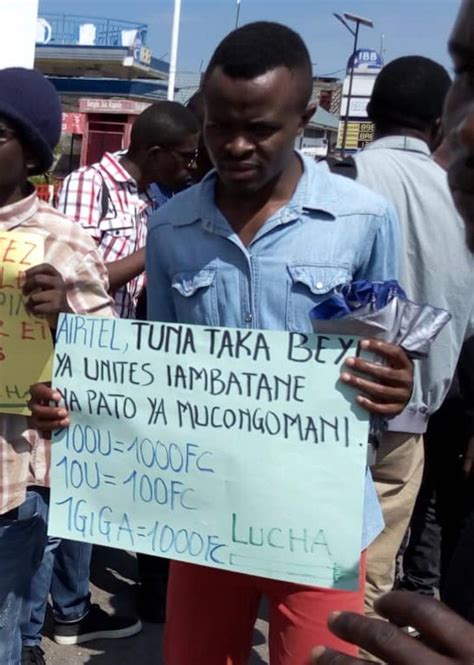 AIRTEL, TUNA TAKA BEYI
YA UNITES IAMBATANE
NA PATO YA MUCONGOMANI.
100U=1000FC
10U=100FC
1GIGA=1000FC
LUCHA
IBB